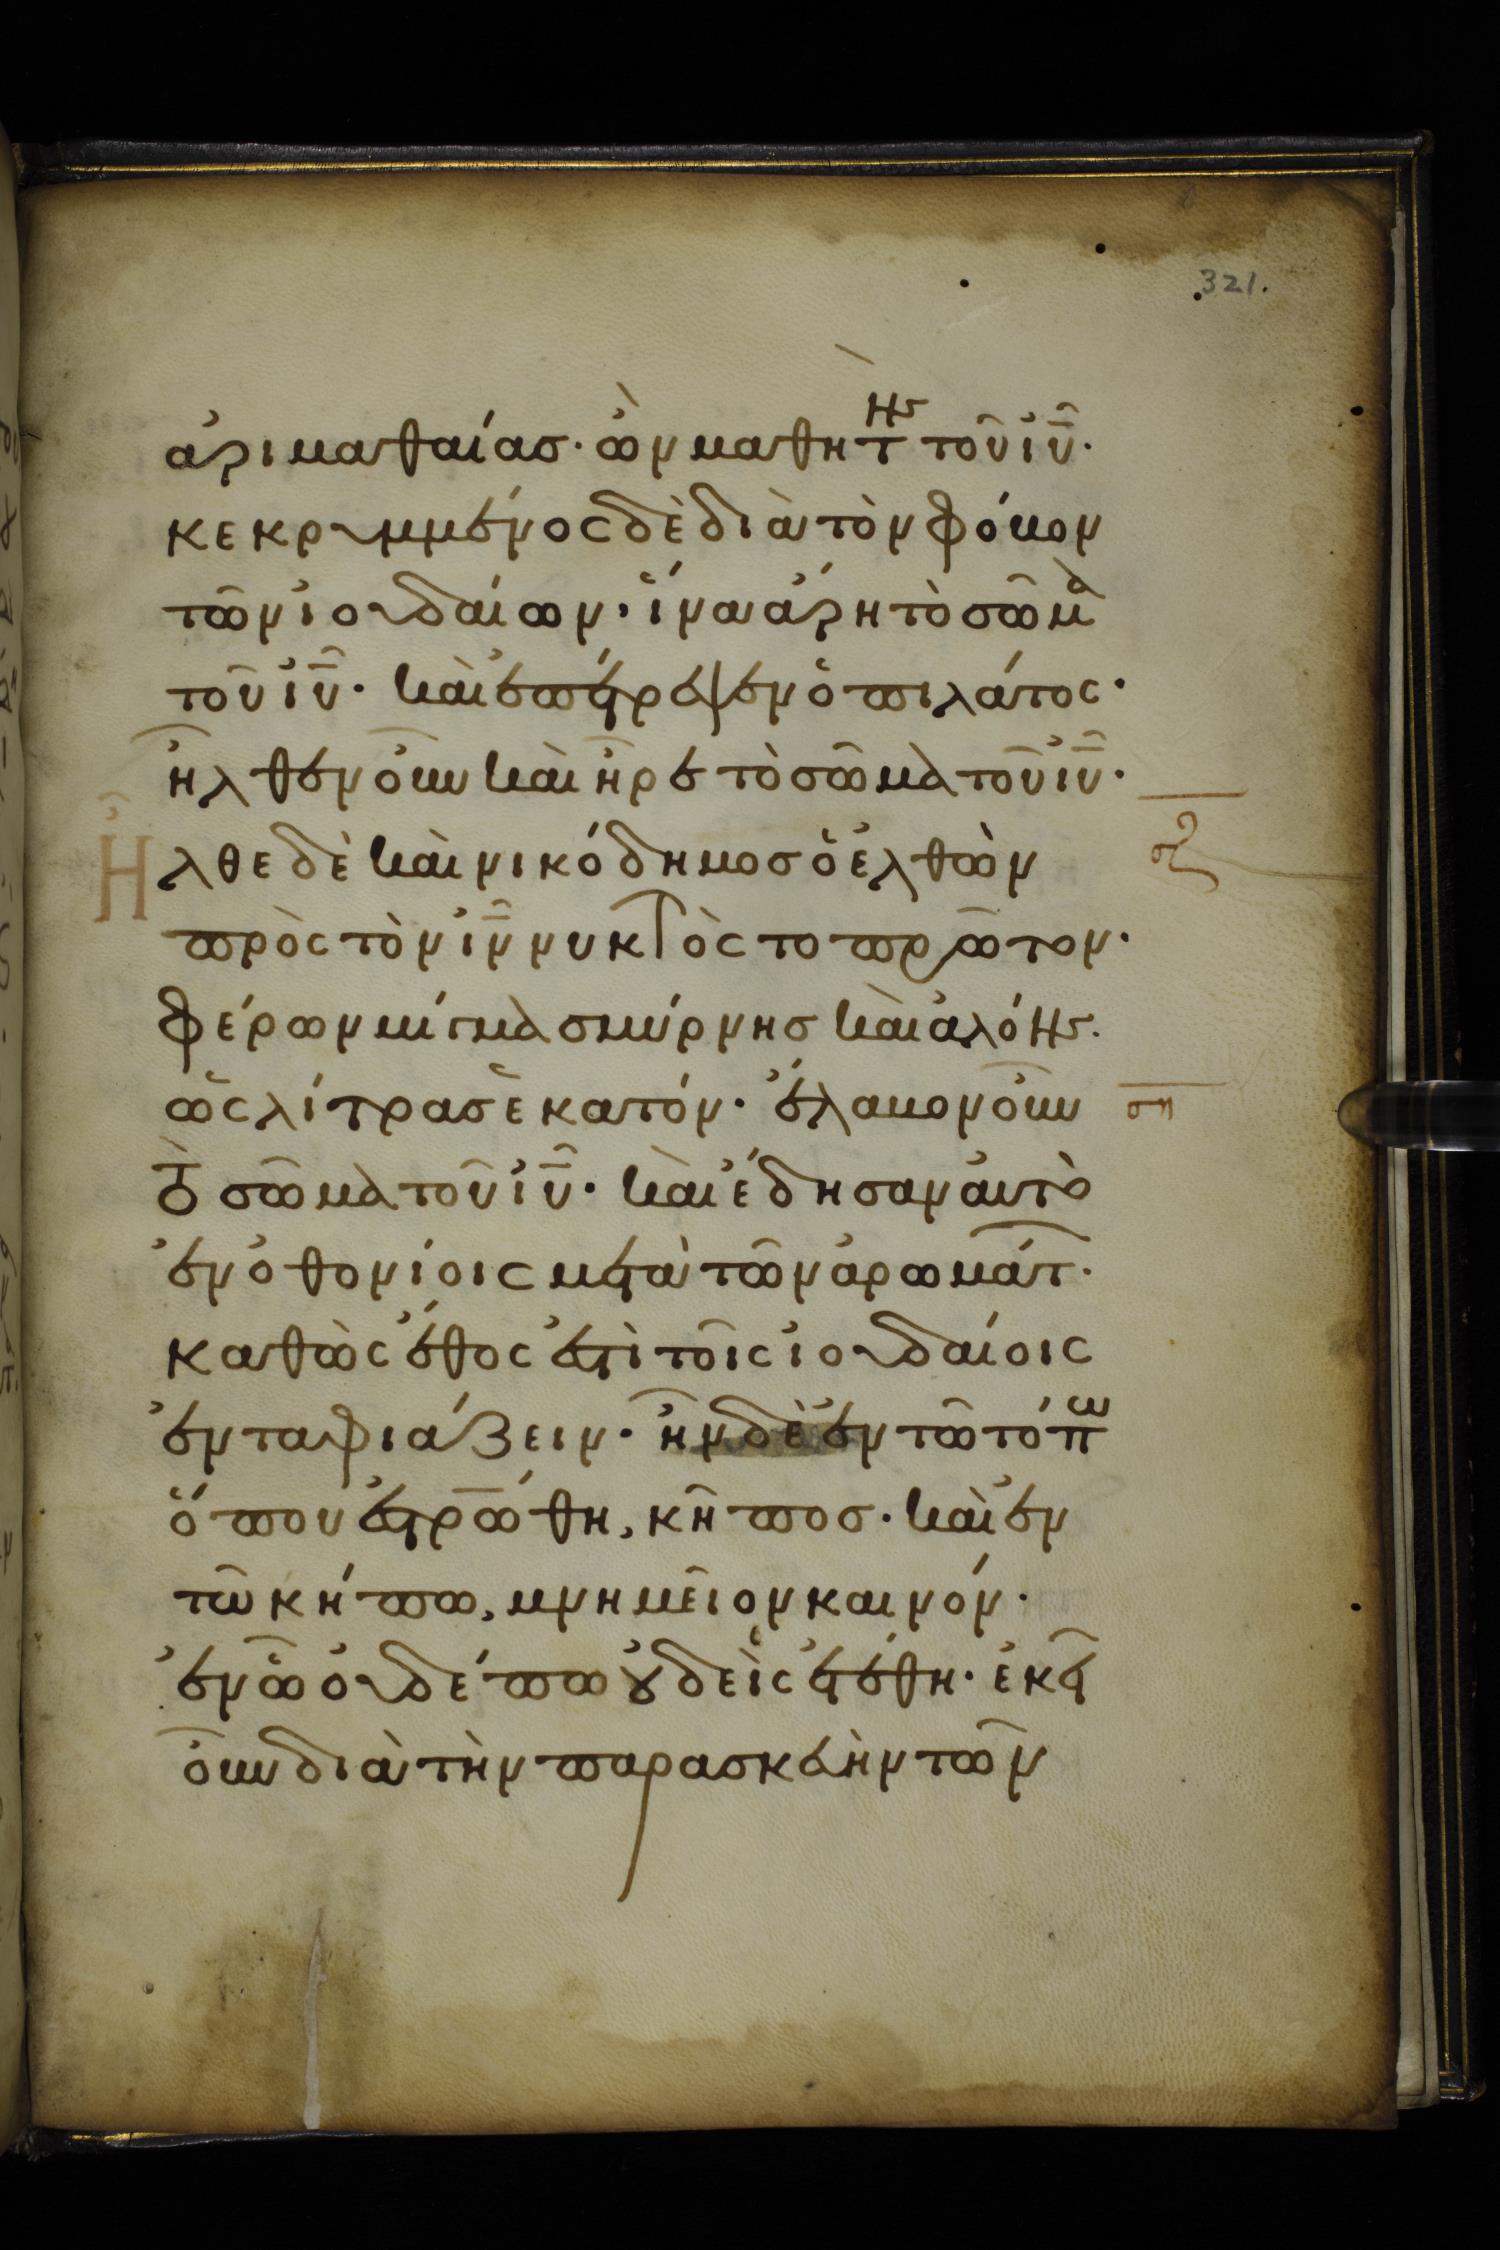 321.
ἀριμαθαίας· ὢν μαθητὴς τοῦ ἰῦ·
κεκρυμμένος δὲ διὰ τὸν φόβον
τῶν ἰουδαίων· ἵνα ἄρη τὸ σῶμὰ
τοῦ ἰῦ· καὶ ἐπέτρεψεν ὁ πιλάτος·
ἦλθεν οὖν καὶ ἦρε τὸ σῶμα τοῦ ἰῦ·
Ἦλθε δὲ καὶ νικόδημοσ ὁ ἐλθὼν
πρὸς τὸν ἰν̄ νυκτὸς το πρῶτον·
φέρων μίγμα σμύρνησ καὶ ἀλόης·
ὡς λίτρασ ἑκατόν· ἔλαβον οὖν
τὸ σῶμα τοῦ ἰῦ· καὶ ἔδησαν αυτὸ
ἐν ὀθονίοις μετὰ τῶν ἀρωμάτ·
καθὼς ἔθος ἐστὶ τοῖς ἰουδαίοις
ἐνταφιάζειν· ἦν δὲ ἐν τῶ τόπω
ὅπου ἐστρώθη, κῆποσ· καὶ ἐν
τῶ κήπω, μνημεῖον καινόν·
ἐν ὧ οὐδέπω οὐδεὶς ἐτέθη· ἐκεῖ
οὖν διὰ τὴν παρασκευὴν τῶν
σζ
ση